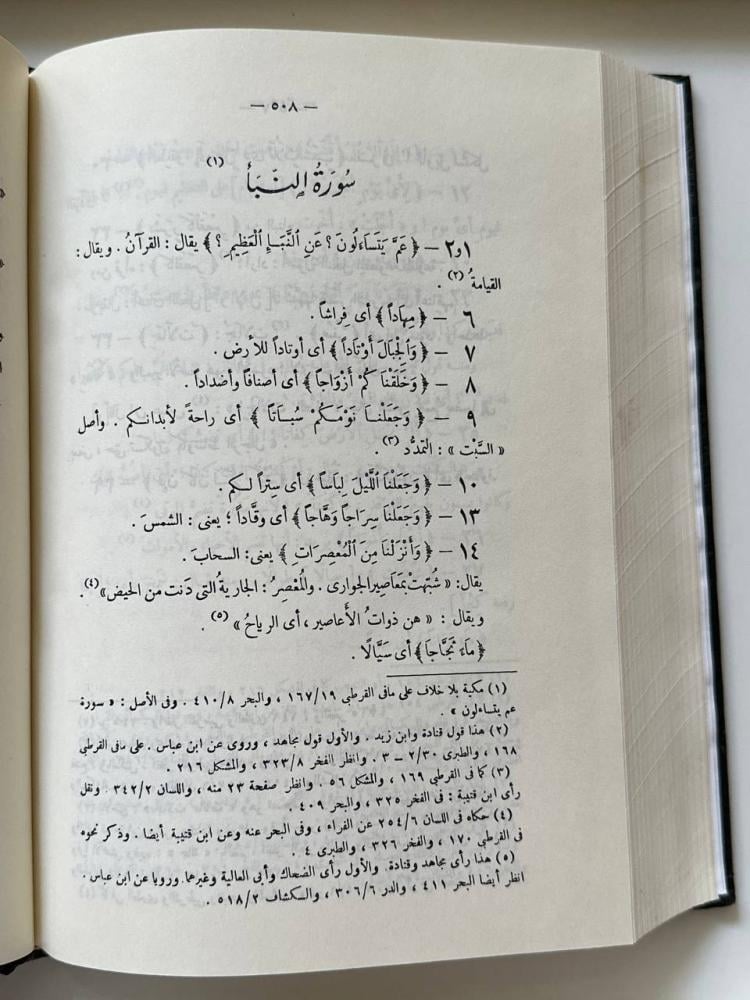 — ٥٠٨ —
سُورَةُ النَّبَأ (١)
١و٢ – ﴿ عَمَّ يَتَسَاءَلُونَ ؟ عَنِ النَّبَإِ الْعَظِيمِ ؟ ﴾ يقال : القرآنُ . ويقال :
القيامةُ (٢) .
٦ – ﴿ مِهَاداً ﴾ أى فِراشاً .
٧ – ﴿ وَالْجِبَالَ أَوْتَاداً ﴾ أى أوتاداً للأرض .
٨ – ﴿ وَخَلَقْنَا كُمْ أَزْوَاجاً ﴾ أى أصنافاً وأضداداً .
٩ – ﴿ وَجَعَلْنَا نَوْمَكُمْ سُبَاتاً ﴾ أى راحةً لأبدانكم . وأصل
« السَّبْت » : التمدُّد (٣) .
١٠ – ﴿ وَجَعَلْنَا اللَّيْلَ لِبَاساً ﴾ أى سِتراً لكم .
١٣ – ﴿ وَجَعَلْنَا سِرَاجاً وَهَّاجاً ﴾ أى وقَّاداً ؛ يعنى : الشمسَ .
١٤ – ﴿ وَأَنْزَلْنَا مِنَ الْمُعْصِرَاتِ ﴾ يعنى: السحابَ .
يقال: « شُبِّهتْ بمَعَاصيرِ الجوارى . والمُعْصِرُ : الجاريةُ التى دَنت من الحيض» (٤) .
ويقال : « هن ذواتُ الأعاصير ، أى الرياحُ » (٥) .
﴿ مَاءً ثَجَّاجاً ﴾ أى سَيَّالًا .
(١) مكية بلا خلاف على مافى القرطبى ١٦٧/١٩ ، والبحر ٤١٠/٨ . وفى الأصل : « سورة
عم يتساءلون » .
(٢) هذا قول قتادة وابن زيد . والأول قول مجاهد ، وروى عن ابن عباس . على مافى القرطبى
١٦٨ ، والطبرى ٢/٣٠ – ٣ . وانظر الفخر ٣٢٣/٨ ، والمشكل ٢١٦ .
(٣) كما فى القرطبى ١٦٩ ، والمشكل ٥٦ . وانظر صفحة ٢٣ منه ، واللسان ٣٤٢/٢ . ونقل
رأى ابن قتيبة : فى الفخر ٣٢٥ ، والبحر ٤٠٩ .
(٤) حكاه فى اللسان ٢٥٤/٦ عن الفراء ، وفى البحر عنه وعن ابن قتيبة أيضا . وذكر نحوه
فى القرطبى ١٧٠ ، والفخر ٣٢٦ ، والطبرى ٤ .
(٥) هذا رأى مجاهد وقتادة. والأول رأى الضحاك وأبى العالية وغيرهما. ورويا عن ابن عباس .
انظر أيضا البحر ٤١١ ، والدر ٣٠٦/٦ ، والكشاف ٥١٨/٢ .